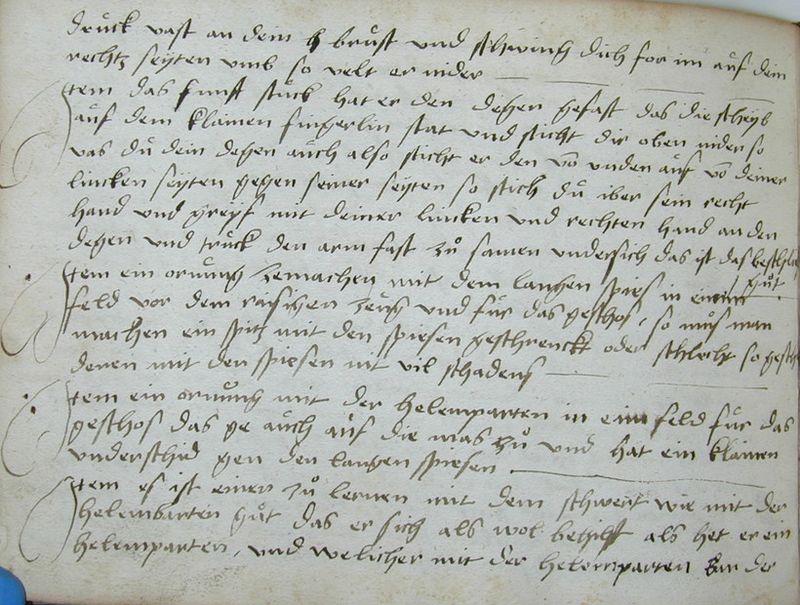 druck vast an dein h brust und schwing dich for im auf dein
rechtz seyten umb so velt er nider
Item das funft stuck hat er den degen gefast das die scheyb
auf dem klainen fingerlin stat und sticht dir oben nider so
vas du dein degen auch also sticht er den vō unden auf vō deiner
lincken seyten gegen seiner seyten so stich du iber sein recht
hand und greyf mit deiner lincken und rechten hand an den
degen und truck den arm fast zů samen undersich das ist das beschlus
gůt
Item ein ornung zemachen mit dem langen spies in einem
feld vor dem raisigen zeug und fur das geschos, so mus man
machen ein spitz mit den spiesen geschrenckt oder schlecht so
deren mit den spiesen nit vil schadens
Item ein ornung mit der helemparten in eim feld fur das
geschos das ge auch auf die mas zů und hat ein klainen
underschid gen den langen spiesen
Item es ist einer zů lernen mit dem schwert wie mit der
helembarten gůt das er sich als wol behilft als het er ein
helemparten, und welicher mit der helemparten kan der